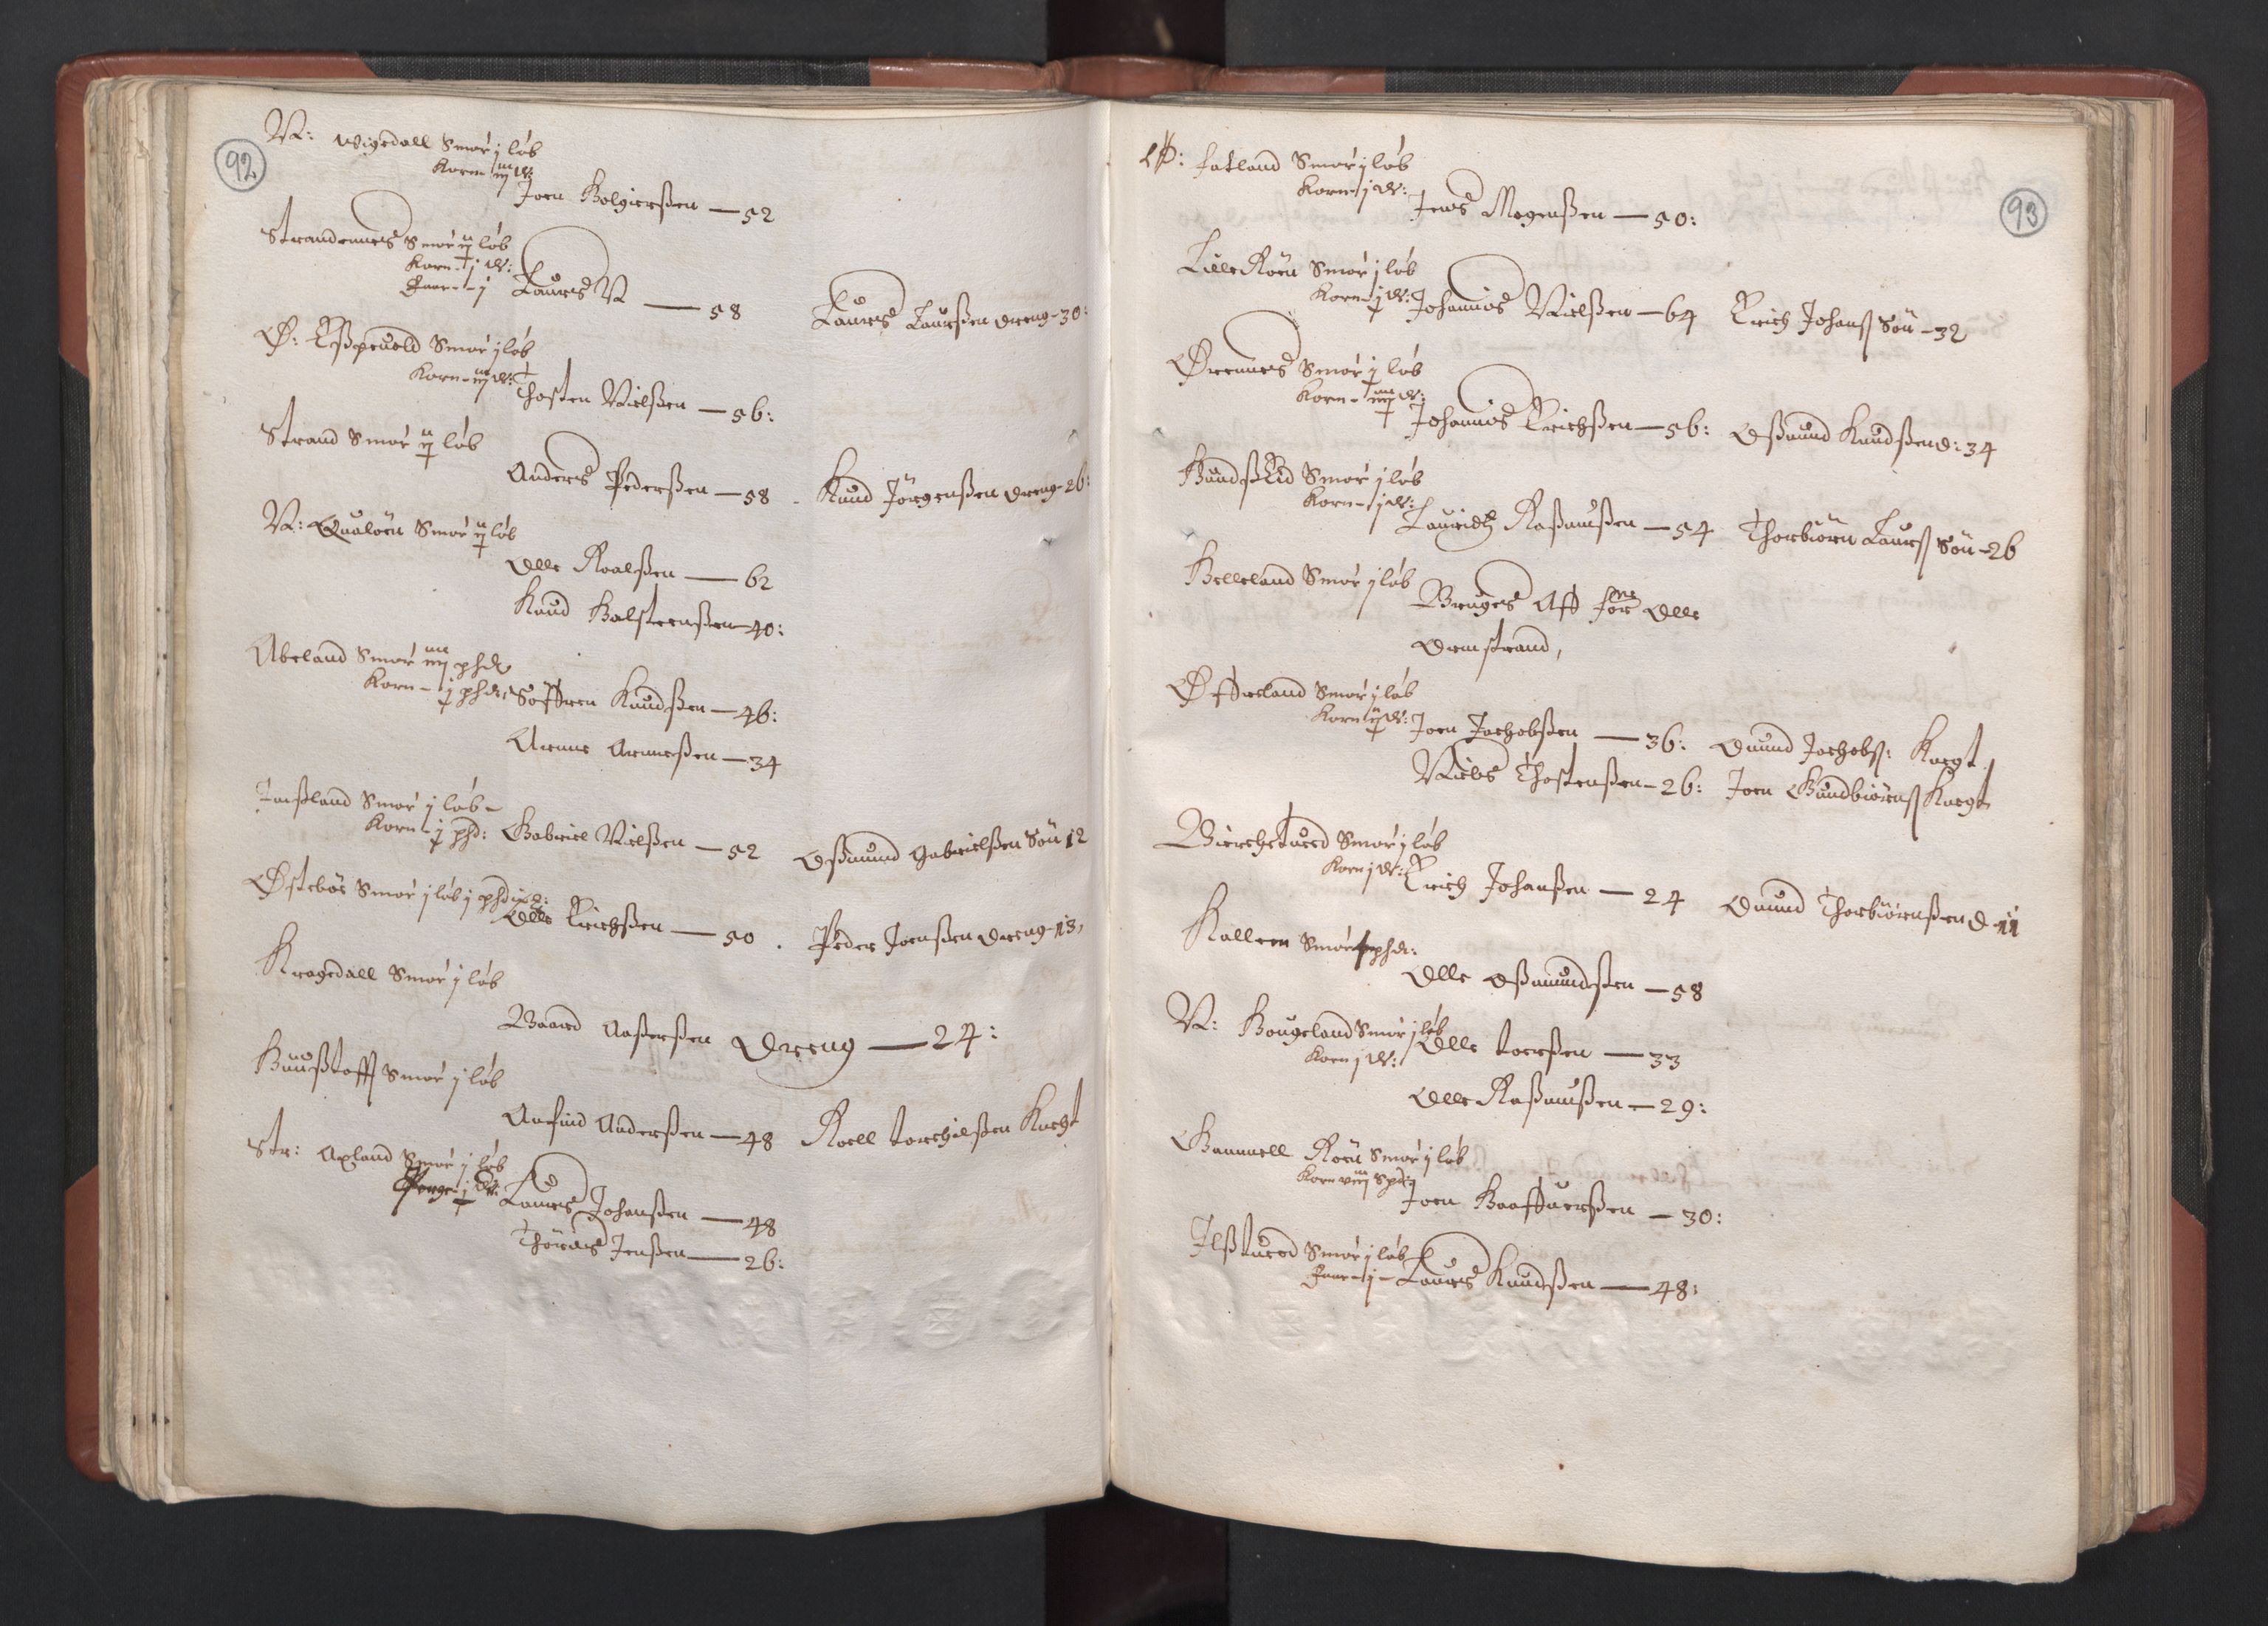 92
N: Wigedall Smør j løb
Korn iij W:
Joen Holgierßen — 52
Strandennes Smør ij løb
Korn - j W:
Faar - j Laures N — 58 Laures Laurßen dreng - 30:
Ø: Eßpeuold Smør j løb
Korn - iij W:
Thosten Nielßen — 56:
Strand Smør ij løb
Anders Pederßen — 58 - Knud Jørgenßen dreng - 26:
N: Qualøen Smør ij løb
Olle Roalßen — 62
Knud Halsteenßen — 40:
Abeland Smør iiij phd
Korn - j phd: Søffren Knudßen — 46:
Arenne Arenneßen — 34
Joeßland Smør j løb -
Korn - j phd: Gabriel Nielßen — 52 Oßmund Gabrielßen Søn 12
Østebøe Smør j løb j phd
Olle Erichßen — 50 . Peder Joenßen dreng - 13,
Kragedall Smør j løb
Baard Aaßerßen Dreng — 24:
Huußtofft Smør j løb
Anfind Anderßen — 48 Roell torchilßen Knegt
Str: Axland Smør j løb
Laures Johanßen — 48
Thøres Jenßen — 26:
93
Ø: Fatland Smør j løb
Korn - j W:
Jens Mogenßen — 50:
Lille Røen Smør j løb
Korn - j W: Johannes Nielßen — 64 Erich Johanß Søn - 32
Ørennes Smør j løb
Korn - iiij W:
Johannes Erichßen — 56: Oßmund Knudßen d: 34
Hundßeid Smør j løb
Korn - j W:
Lauridtz Raßmußen — 54 Thorbiørn Laurß Søn - 26
Helleland Smør j løb
Bruges Aff forne Olle
Ormstrand,
Øffreland Smør j løb
Korn ij W: Joen Jachobßen — 36: Omund Jachobß: Knegt
Niels Thostenßen - 26: Joen Gundbiørnß Knegt
Bierchetued Smør j løb
Korn j W: Erich Johanßen — 24 Omund Thorbiørnßen d - 11
Kalleen Smør phd:
Olle Oßmundßen — 58
N: Hougeland Smør j løb
Korn j W: Olle toerßen — 33
Olle Raßmußen — 29:
Gammell Røen Smør j løb
Korn viij Spd
Joen Haaffuerßen — 30:
Ilßtued Smør j løb
Faar - j - Laures Knudßen — 48: